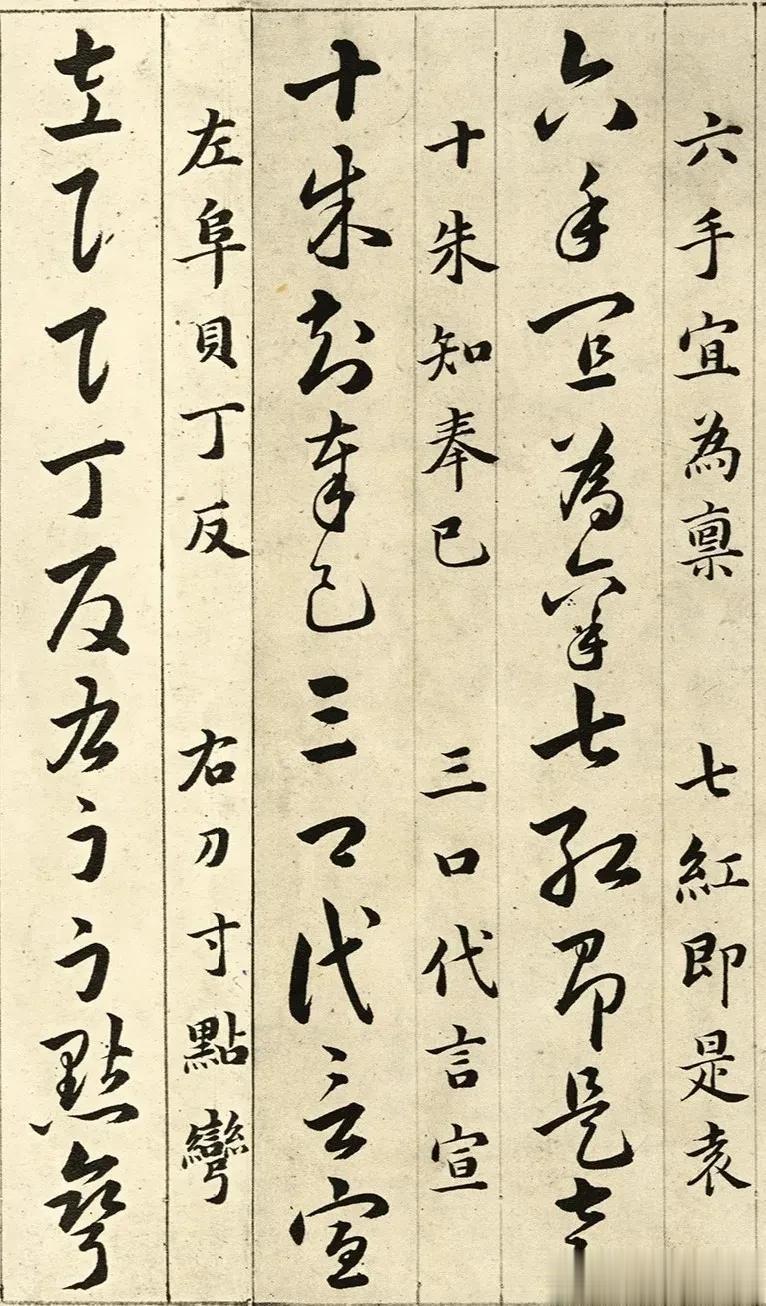 六手宜為禀 七紅即是袁
六手宜為禀七紅即是
十朱知奉已 三口代言宣
十朱知奉已三口代言宣
左阜貝丁反 右刀寸點彎
左阜貝丁反右刀寸點彎